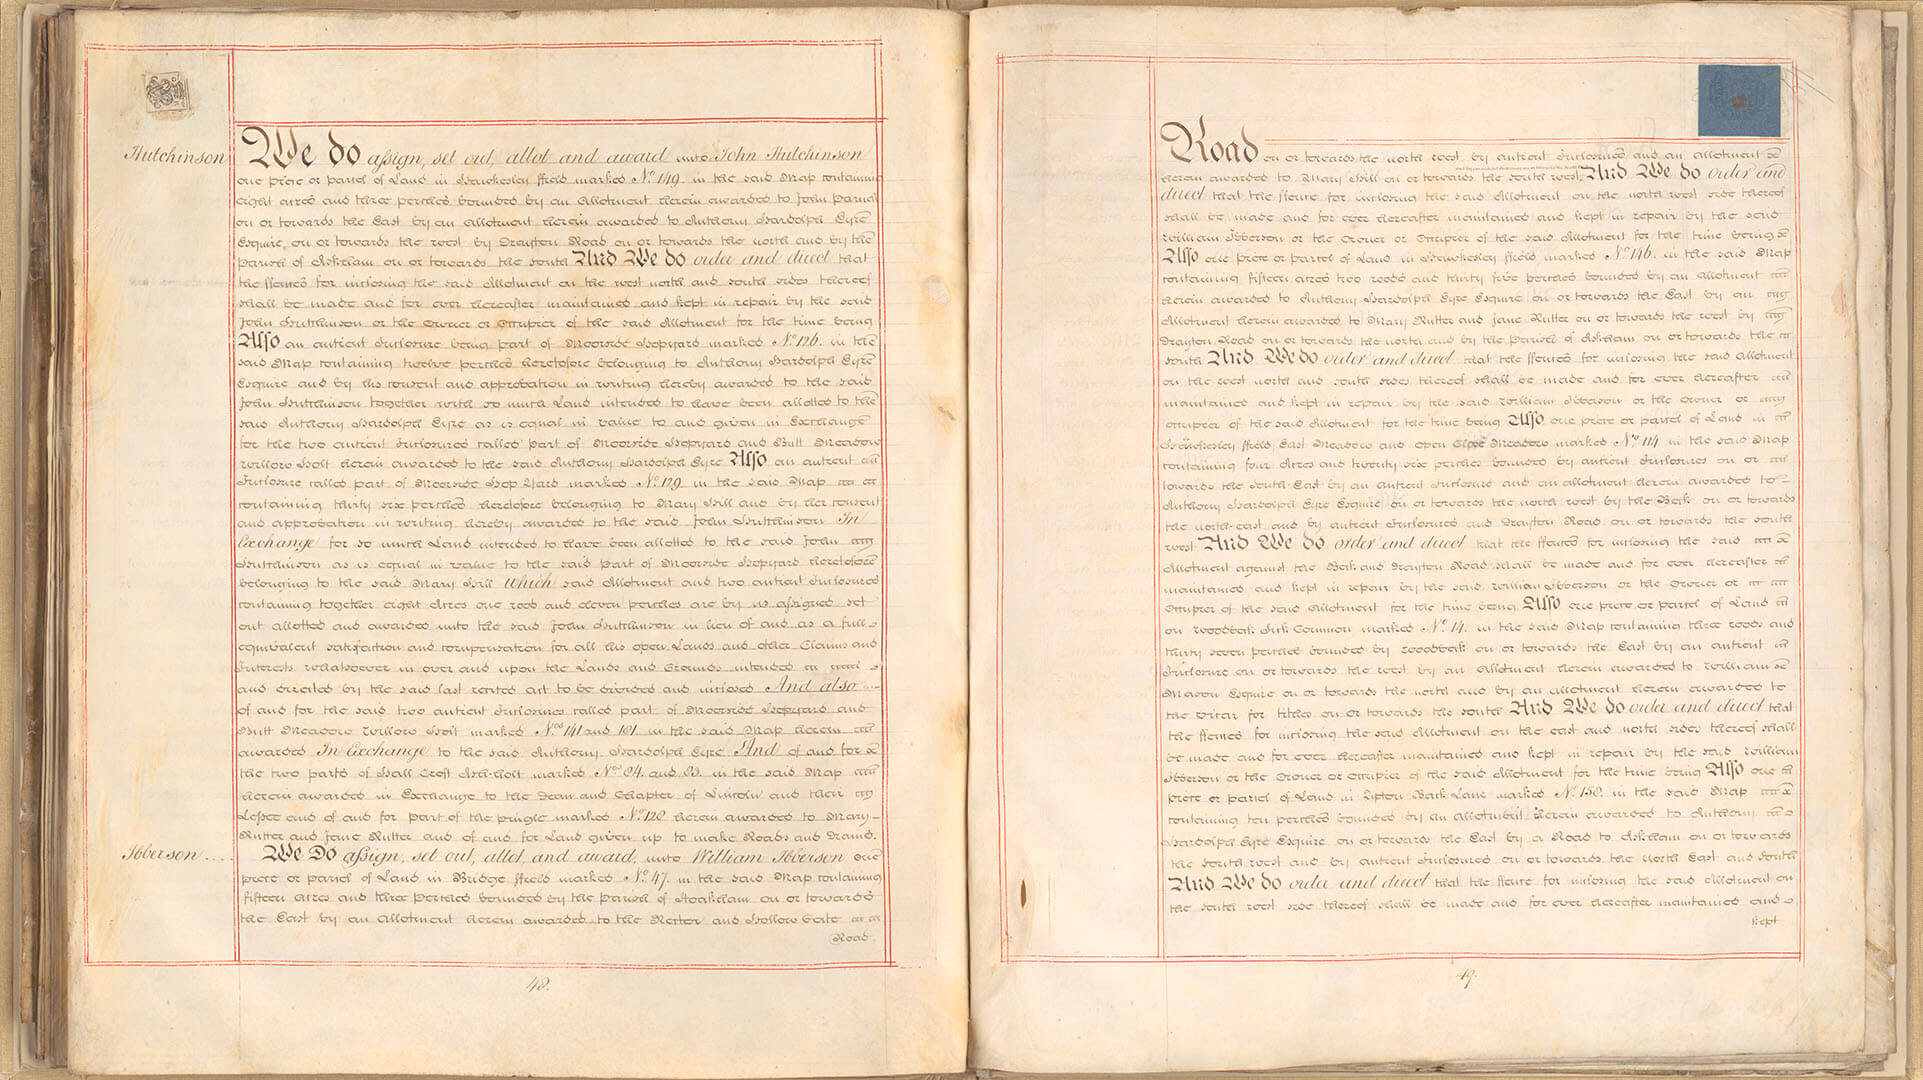 Hutchinson
We do assign, set out, allot and award unto John Hutchinson
one piece or parcel of Land in Hawkesley ffield marked No. 149. in the said Map containing
eight acres and three perches bounded by an Allotment herein awarded to John Parnell
on or towards the East by an Allotment herein awarded to Anthony Hardolph Eyre
Esquire on or towards the west by Drayton Road on or towards the north and by the
parish of Askham on or towards the south And We do order and direct that
the ffences for inclosing the said Allotment on the west north and south sides thereof
shall be made and for ever hereafter maintained and kept in repair by the said
John Hutchinson or the Owner or Occupier of the said Allotment for the time being
Also an antient Inclosure being part of Moorside Hopyard marked No. 126. in the
said Map containing twelve perches heretofore belonging to Anthony Hardolph Eyre
Esquire and by his consent and approbation in writing hereby awarded to the said
John Hutchinson together with so much Land intended to have been allotted to the
said Anthony Hardolph Eyre as is equal in value to and given in Exchange
for the two antient Inclosures called part of Moorside Hopyard and Butt Meadow
Willow Holt herein awarded to the said Anthony Hardolph Eyre Also an antient
Inclosure called part of Moorside Hop Yard marked No. 129. in the said Map
containing thirty six perches theretofore belonging to Mary Hill and by her consent
and approbation in writing hereby awarded to the said John Hutchinson In
Exchange for so much Land intended to have been allotted to the said John
Hutchinson as is equal in value to the said part of Moorside Hopyard heretofore
belonging to the said Mary Hill Which said Allotment and two antient Inclosures
containing together eight Acres one rood and eleven perches are by us assigned set
out allotted and awarded unto the said John Hutchinson in lieu of and as a full
equivalent satisfaction and compensation for all his open Lands and other Claims and
Interests whatsoever in over and upon the Lands and Grounds intended
and directed by the said last recited act to be divided and inclosed And also
of and for the said two antient Inclosures called part of Moorside Hopyard and
Butt Meadow Willow Holt marked Nos. 141 and 181. in the said Map herein
awarded In Exchange to the said Anthony Hardolph Eyre And of and for
the two parts of Hall Croft Ash-holt marked Nos. 84. and 83. in the said Map
herein awarded in Exchange to the Dean and Chapter of Lincoln and their
Lessee and of and for part of the pingle marked No. 128 herein awarded to Mary
Rutter and Jane Rutter and of and for Land given up to make Roads and Drains.
Ibberson ....
We Do assign, set out, allot, and award, unto William Ibberson one
piece or parcel of Land in Bridge ffield marked No. 47. in the said Map containing
fifteen acres and three perches bounded by the Parish of Headon on or towards
the East by an Allotment herein awarded to the Rector and Hollow Gate
Road
48.
Road on or towards the north west by antient Inclosures and an allotment
herein awarded to Mary Hill on or towards the south west And We do order and
direct that the ffence for inclosing the said Allotment on the north west side thereof
shall be made and for ever hereafter maintained and kept in repair by the said
William Ibberson or the Owner or Occupier of the said Allotment for the time being
Also one piece or parcel of Land in Hawkesley ffield marked No. 146. in the said Map
containing fifteen acres two roods and thirty five perches bounded by an allotment
herein awarded to Anthony Hardolph Eyre Esquire on or towards the East by an
Allotment herein awarded to Mary Rutter and Jane Rutter on or towards the west by
Drayton Road on or towards the north and by the Parish of Askham on or towards the
south And We do order and direct that the ffences for inclosing the said Allotment
on the west north and south sides thereof shall be made and for ever hereafter
maintained and kept in repair by the said William Ibberson or the Owner or
occupier of the said Allotment for the time being Also one piece or parcel of Land in
Hawkesley ffield East Meadow and open Close Meadow marked No. 114 in the said Map
containing four Acres and twenty six perches bounded by antient Inclosures on or
towards the South East by an antient Inclosure and an allotment herein awarded to
Anthony Hardolph Eyre Esquire on or towards the north west by the Beck on or towards
the north-east and by antient Inclosures and Drayton Road on or towards the south
west And We do order and direct that the ffences for inclosing the said
Allotment against the Beck and Drayton Road shall be made and for ever hereafter
maintained and kept in repair by the said William Ibberson or the Owner or
Occupier of the said Allotment for the time being Also one piece or parcel of Land
on Woodbeck Sick Common marked No. 14. in the said Map containing three roods and
thirty seven perches bounded by Woodbeck on or towards the East by an antient
Inclosure on or towards the west by an Allotment herein awarded to William
Mason Esquire on or towards the north and by an allotment herein awarded to
the Vicar for tithes on or towards the South And We do order and direct that
the ffences for inclosing the said Allotment on the east and north sides thereof shall
be made and for ever hereafter maintained and kept in repair by the said William
Ibberson or the Owner or occupier of the said Allotment for the time being Also one
piece or parcel of Land in Upton Back Lane marked No. 158. in the said Map
containing ten perches bounded by an allotment herein awarded to Anthony
Hardolph Eyre Esquire on or towards the East by a Road to Askham on or towards
the south west and by antient Inclosures on or towards the North East and South
And We do order and direct that the ffence for inclosing the said Allotment on
the south west side thereof shall be made and for ever hereafter maintained and
kept
49.